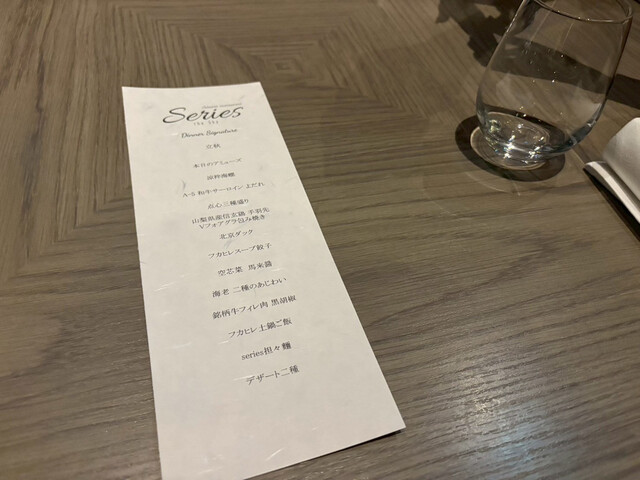 Series
Dinner Signature
立秋
本日のアミューズ
涼拌海蜇
A-5 和牛サーロイン よだれ
点心三種盛り
山梨県産信玄鶏 手羽先
Vフォアグラ包み焼き
北京ダック
フカヒレスープ餃子
空芯菜 馬来醤
海老 二種のあじわい
銘柄牛フィレ肉 黒胡椒
フカヒレ土鍋ご飯
series担々麵
デザート二種